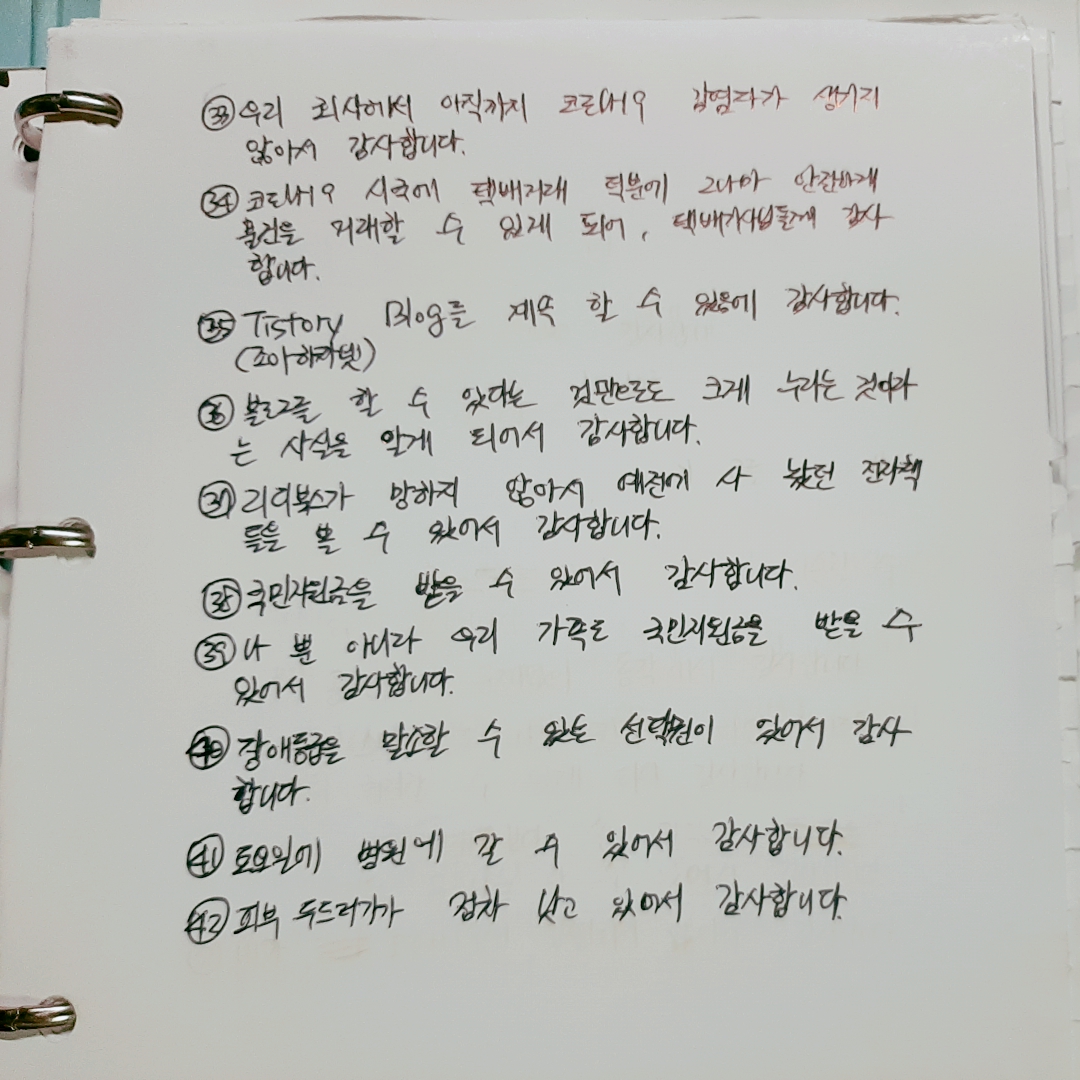 ㉝ 우리 회사에서 아직까지 코로나19 감염자가 생기지
않아서 감사합니다.
㉞ 코로나19 시국에 택배거래 덕분에 그나마 안전하게
물건을 거래할 수 있게 되어, 택배기사님들께 감사
합니다.
㉟ Tistory Blog를 계속 할 수 있음에 감사합니다.
㊱ 블로그를 할 수 있다는 것만으로도 크게 누리는 것이라
는 사실을 알게 되어서 감사합니다.
㊲ 리디북스가 망하지 않아서 예전에 사 놨던 전자책
들을 볼 수 있어서 감사합니다.
㊳ 국민지원금을 받을 수 있어서 감사합니다.
㊴ 나 뿐 아니라 우리 가족도 국민지원금을 받을 수
있어서 감사합니다.
㊵ 장애등급을 말소할 수 있는 선택권이 있어서 감사
합니다.
㊶ 토요일에 병원에 갈 수 있어서 감사합니다.
㊷ 피부 두드러기가 점차 낫고 있어서 감사합니다.